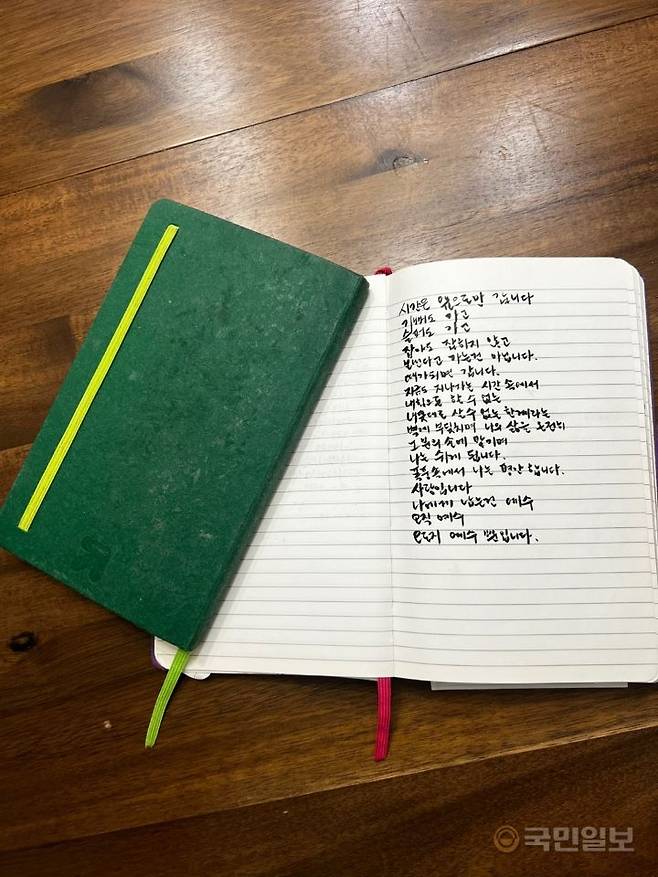 시간은 앞으로만 갑니다
기뻐도 가고
슬퍼도 가고
잡아도 잡히지 않고
보낸다고 가는건 아닙니다.
때가되면 갑니다.
지금도 지나가는 시간 속에서
내힘으로 할 수 없는
내뜻대로 살 수 없는 한계라는
벽에 부딪히며 나의 삶은 온전히
그 분의 손에 맡기며
나는 쉬게 됩니다.
폭풍속에서 나는 평안 합니다.
사랑입니다
나에게 남는건 예수
오직 예수
오로지 예수 뿐입니다.
국민일보